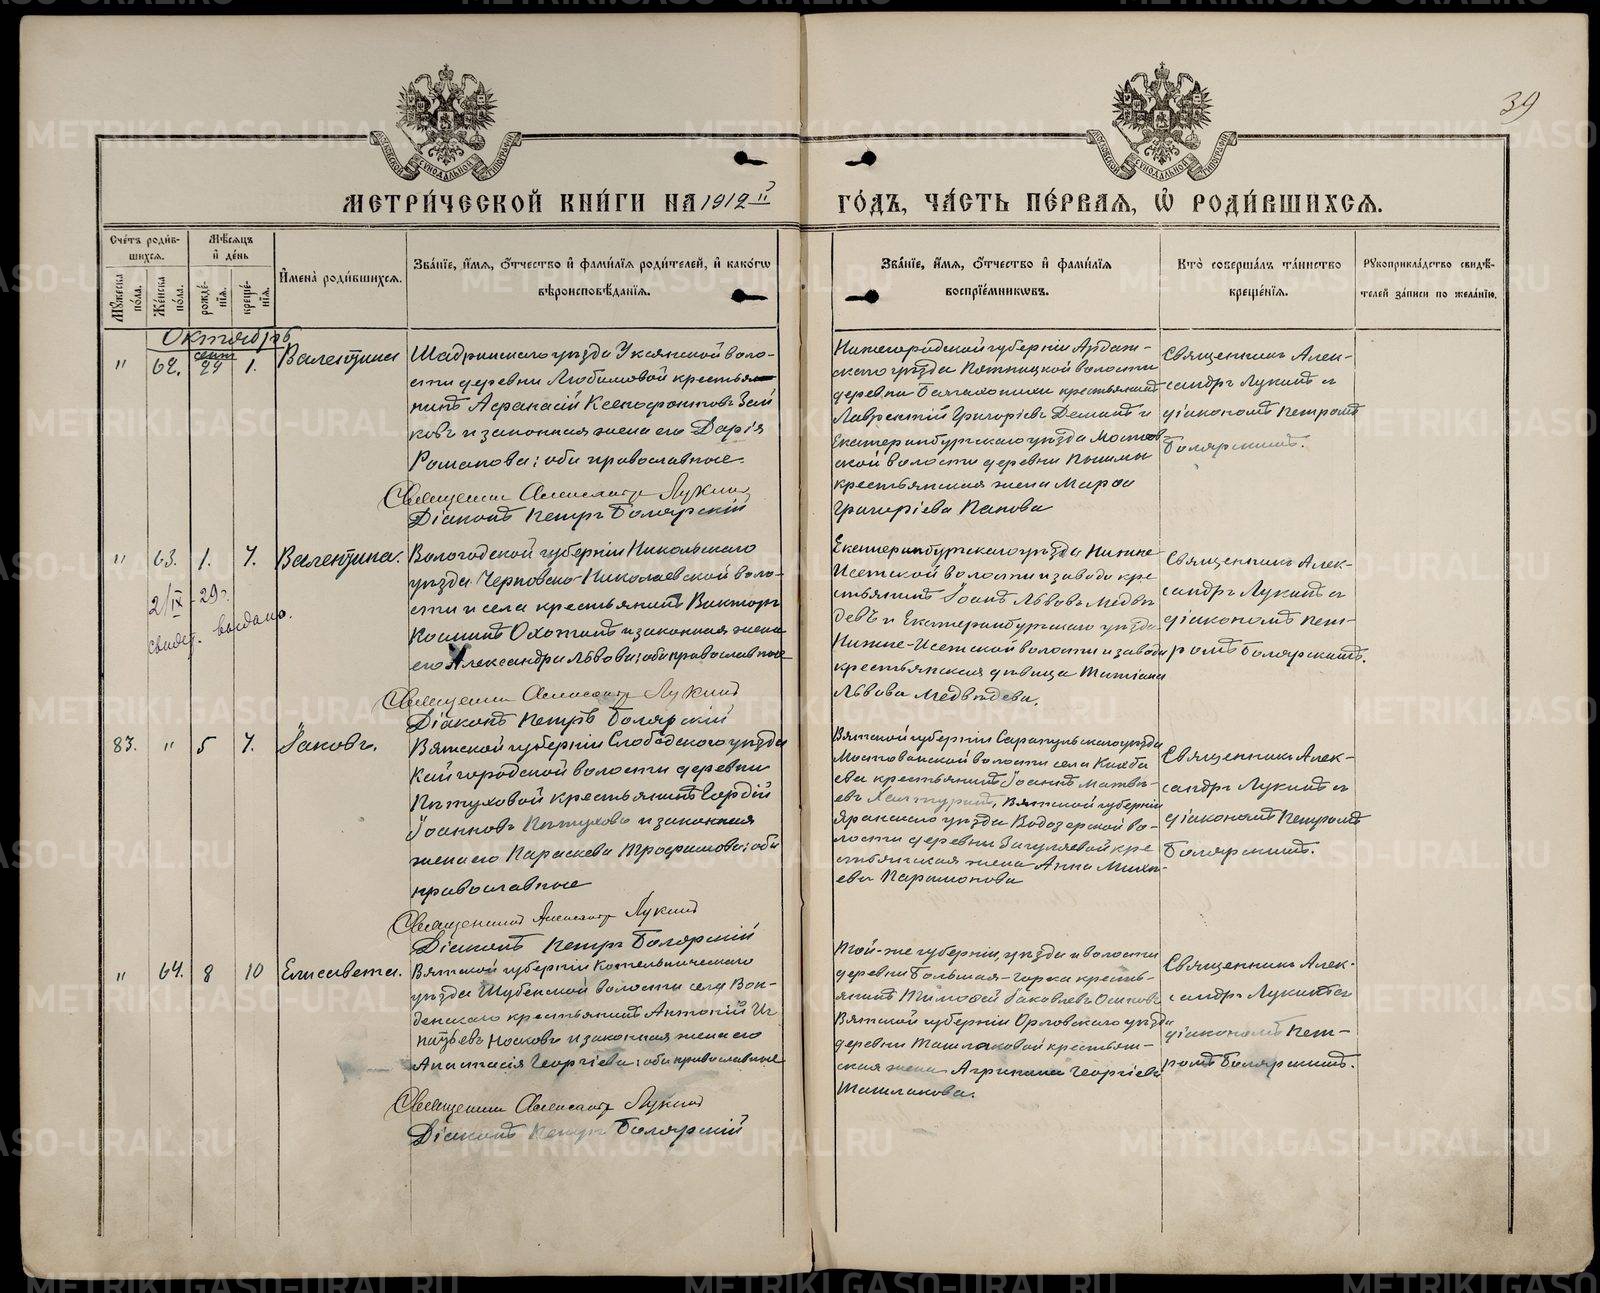 39
МЕТРИ́ЧЕСКОЙ КНИ́ГИ НА 1912 й
ГО́ДЪ, ЧА́СТЬ ПЕ́РВАЯ, Ѡ РОДИ́ВШИХСЯ.
Сче́тъ роди́вшихся.
Мѣ́сяцъ и́ де́нь
И҆мена̀ роди́вшихся.
Зва́нїе, и҆́мя, ѻ҆́тчество и҆ фами́лїя роди́телей, и҆ како́гѡ
вѣроисповѣ́данїя.
Зва́нїе, и҆́мя, ѻ҆́тчество и҆ фами́лїя
воспрїе́мниковъ.
Кто̀ соверша́лъ та́инство
креще́нїя.
Рꙋкоприкла́дство свидѣ́-
телей за́писи по жела́нїю.
Мꙋ́жеска по́ла.
Же́нска по́ла.
рожде́нїя.
креще́нїя.
Октябрь
" 62. сент 29 1. Валентина
Шадринскаго уѣзда Уксянской воло-
сти деревни Любимовой крестья-
нинъ Афанасій Ксенофонтовъ Зай
ковъ и законная жена его Дарія
Романова; оба православные
Священникъ Александръ Лукинъ
Діаконъ Петръ Болярскій
Нижегородской губерніи Ардат-
скаго уѣзда Пятницкой волости
деревни крестьянинъ
Лаврентій Григоріевъ Деминъ и
Екатеринбургскаго уѣзда Мостов
ской волости деревни Пышмы
крестьянская жена Марѳа
Григоріева Панова
Священникъ Алек-
сандръ Лукинъ съ
діакономъ Петромъ
Болярскимъ.
" 63. 1. 7. Валентина.
2/IX - 29 г.
свидет. выдано.
Вологодской губерніи Никольскаго
уѣзда Черновско-Николаевской воло-
сти и села крестьянинъ Викторъ
Козминъ Охотинъ и законная жена
его Александра Львова; оба православные
Священникъ Александръ Лукинъ
Діаконъ Петръ Болярскій
Екатеринбургскаго уѣзда Нижне
Исетской волости и завода кре
стьянинъ Іоаннъ Львовъ Медвѣ
девъ и Екатеринбургскаго уѣзда
Нижне-Исетской волости и завода
крестьянская дѣвица Татіана
Львова Медвѣдева.
Священникъ Алек-
сандръ Лукинъ съ
діакономъ Пет-
ромъ Болярскимъ.
83. " 5 7. Іаковъ.
Вятской губерніи Слободского уѣзда
Кайгородской волости деревни
Пѣтуховой крестьянинъ Гордій
Іоанновъ Пѣтуховъ и законная
жена его Параскева Трофимова; оба
православные
Священникъ Александръ Лукинъ
Діаконъ Петръ Болярскій
Вятской губерніи Сарапульскаго уѣзда
Мостовинской волости села
ева крестьянинъ Іоаннъ Матвѣ-
евъ Халтуринъ, Вятской губерніи
Яранскаго уѣзда Водозерской во-
лости деревни кре
стьянская жена Анна Михѣ-
ева Парамонова
Священникъ Алек-
сандръ Лукинъ съ
діакономъ Петромъ
Болярскимъ.
" 64. 8 10 Елисавета.
Вятской губерніи Котельническаго
уѣзда Шубенской волости села Вон-
денскаго крестьянинъ Антоній Иг
натьевъ Носковъ и законная жена его
Анастасія Георгіева; оба православные
Священникъ Александръ Лукинъ
Діаконъ Петръ Болярскій
Той-же губерніи, уѣзда и волости
деревни Большая-Горка кресть-
янинъ Тимоѳей Іаковлевъ Осиповъ
Вятской губерніи Орловскаго уѣзда
деревни Ташлаковой крестьян-
ская жена Агрипина Георгіева
Ташлакова.
Священникъ Алек-
сандръ Лукинъ съ
діакономъ Пет-
ромъ Болярскимъ.
METRIKI.GASO-URAL.RU